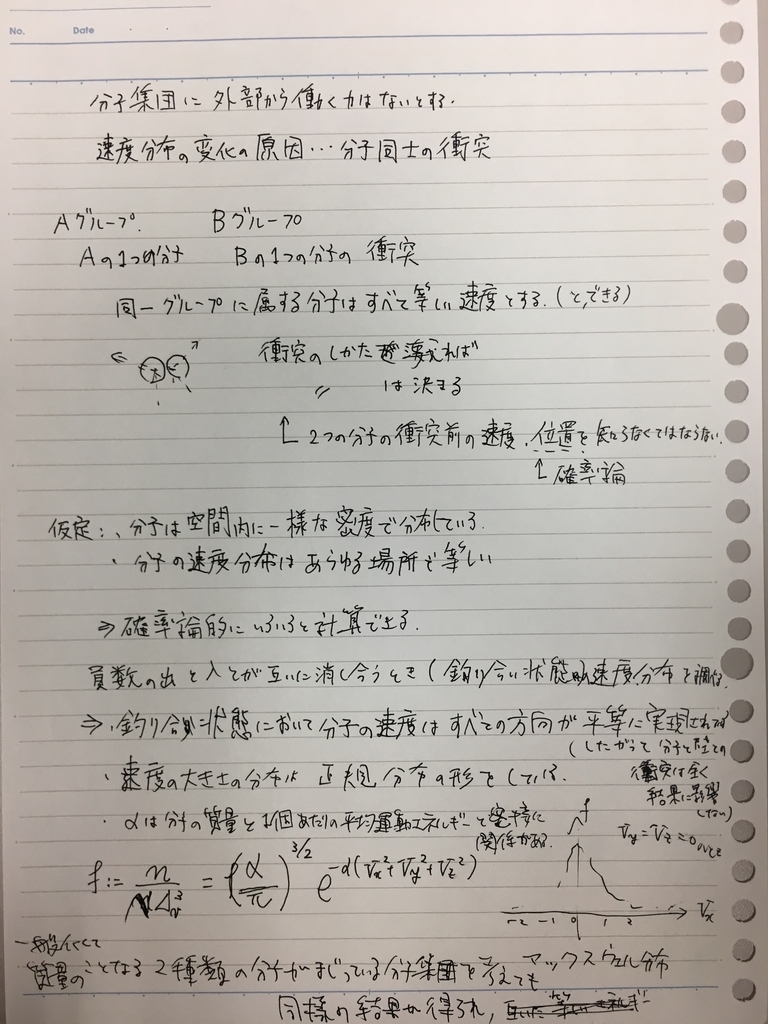 No. Date
分子集団に外部から働く力はないとする.
速度分布の変化の原因…分子同士の衝突
Aグループ. Bグループ
Aの1つの分子 Bの1つの分子の衝突
同一グループに属する分子はすべて等しい速度とする.(と,できる)
衝突のしかた
〃 は決まる
↑ 2つの分子の衝突前の速度,位置を知らなくてはならない.
↑確率論
仮定:・分子は空間内に一様な密度で分布している.
・分子の速度分布はあらゆる場所で等しい
⇒確率論的にいろいろと計算できる.
員数の出と入とが互いに消し合うとき(釣り合い状態 速度分布を調べる
⇒・釣り合い状態において分子の速度はすべての方向が平等に実現されてる
(したがって分子と壁との
衝突は全く
結果に影響
しない)
・速度の大きさの分布は正規分布の形をしている.
・αは分子の質量と1個あたりの平均運動エネルギーと密接に
関係がある.
f := n/ΔN = (α/π)^{3/2} e^{-α(Vx²+Vy²+Vz²)}
f
Vy=Vz=0
-2 -1 0 1 2 Vx
一般化して
質量のことなる2種類の分子がまじっている分子集団を考えても マックスウェル分布
同様の結果が得られ,